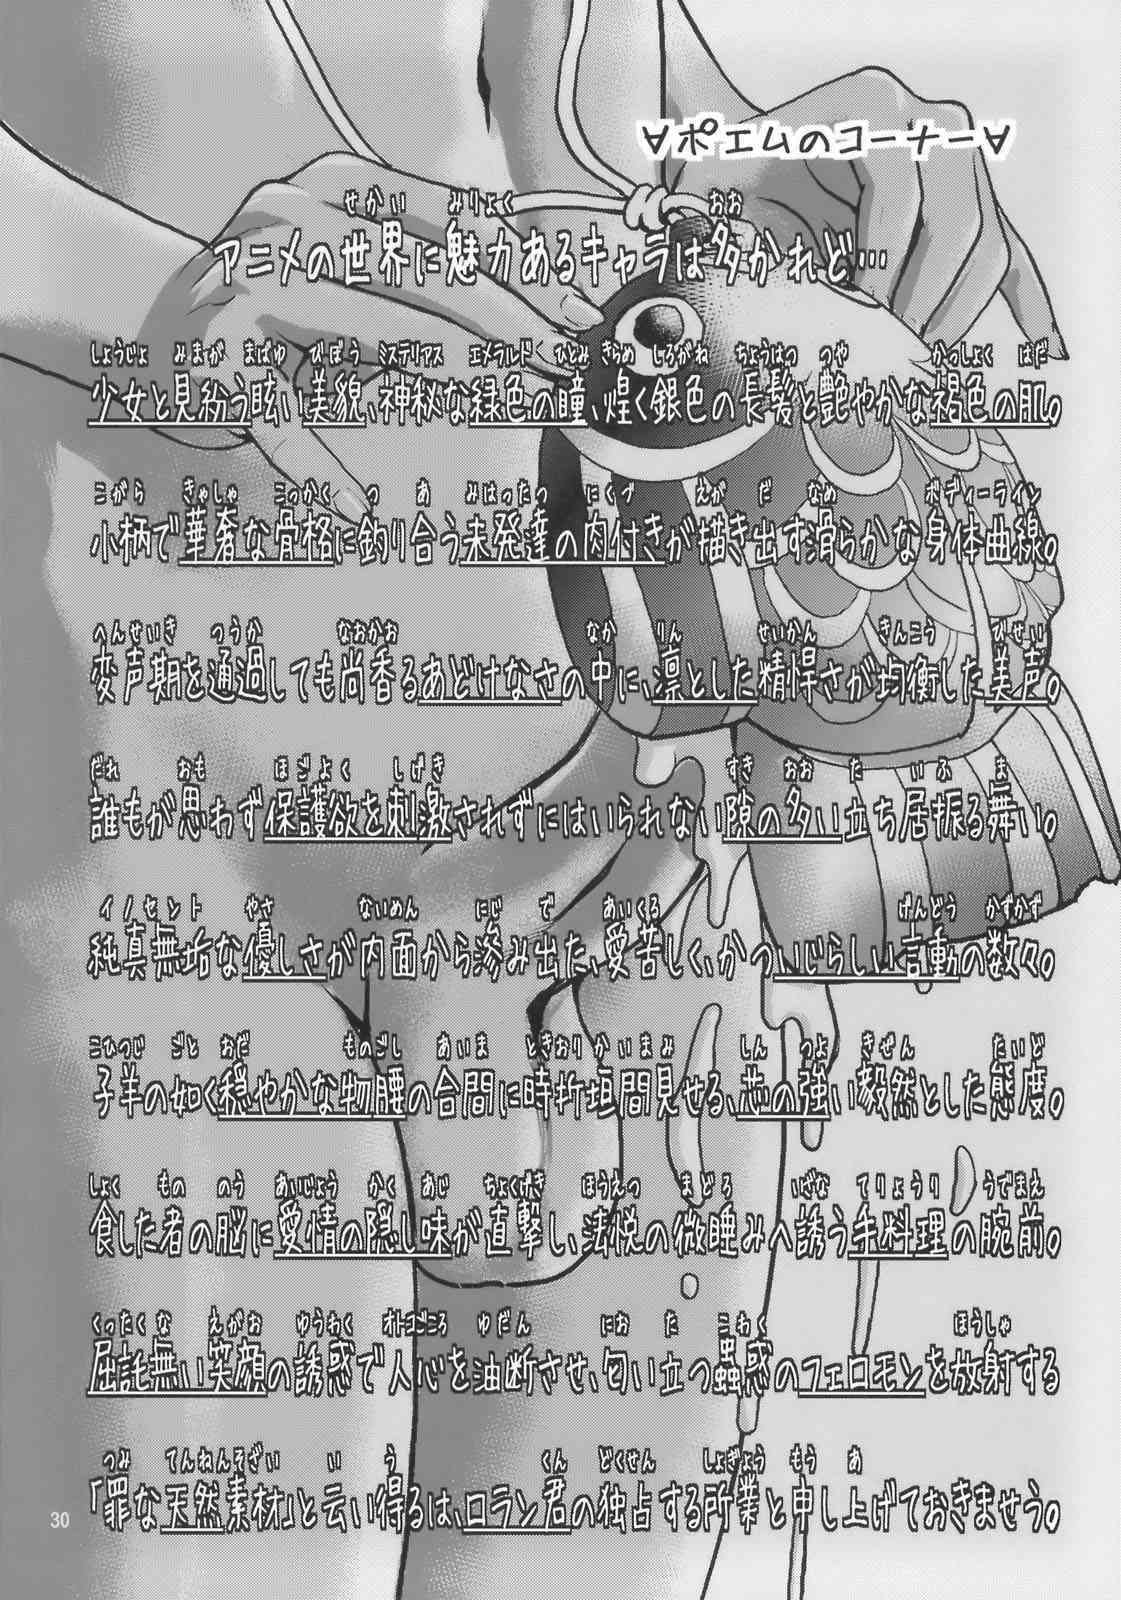 ∀ポエムのコーナー∀
アニメの世界に魅力あるキャラは多かれど…
少女と見紛う眩い美貌、神秘な緑色の瞳、煌く銀色の長髪と艶やかな褐色の肌。
小柄で華奢な骨格に釣り合う未発達の肉付きが描き出す滑らかな身体曲線。
変声期を通過しても尚香るあどけなさの中に、凛とした精悍さが均衡した美声。
誰もが思わず保護欲を刺激されずにはいられない隙の多い立ち居振る舞い。
純真無垢な優しさが内面から滲み出た、愛苦しく、かついじらしい言動の数々。
子羊の如く穏やかな物腰の合間に時折垣間見せる、芯の強い毅然とした態度。
食した者の脳に愛情の隠し味が直撃し、法悦の微睡みへ誘う手料理の腕前。
屈託無い笑顔の誘惑で人心を油断させ、匂い立つ蠱惑のフェロモンを放射する
「罪な天然素材」と云い得るは、ロラン君の独占する所業と申し上げておきませう。
30